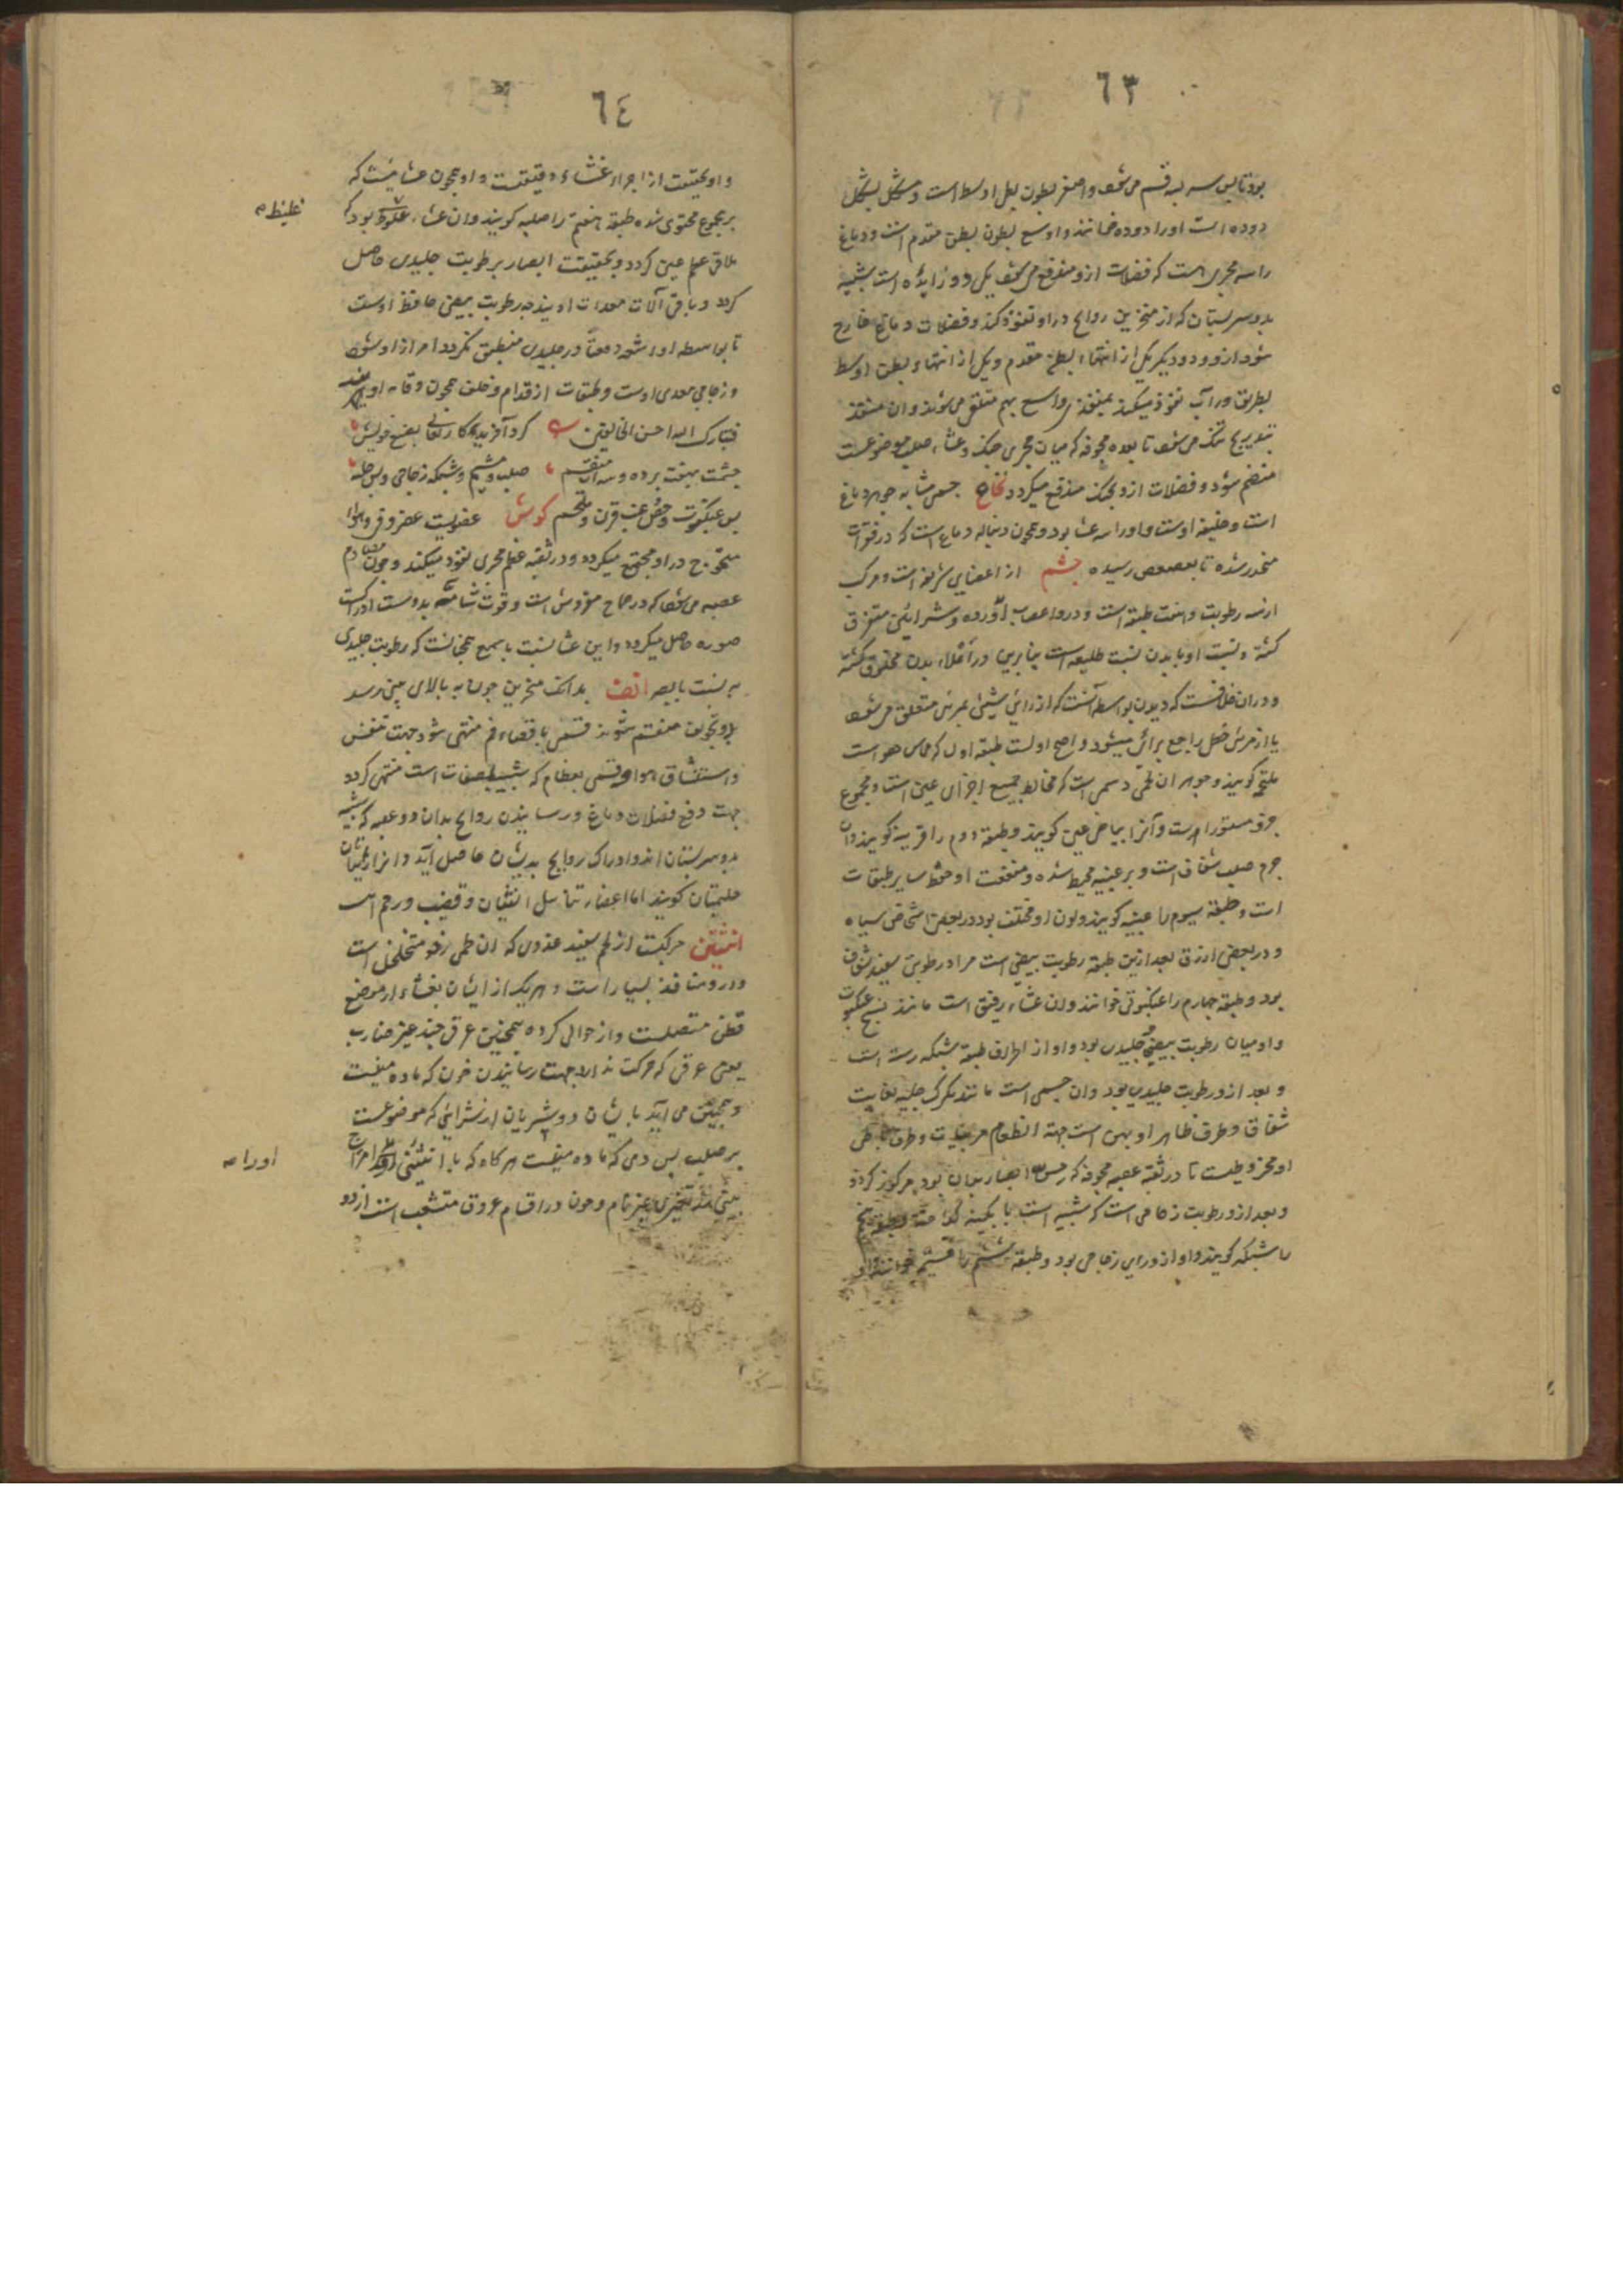 ٦٣
بود تا پس سه قسم می شود و اصغر بطون بطن اوسط است و مشکل بشکل
دوده است او را دوده خوانند و اوسع بطون بطن مقدم است و دماغ
را سه مجری است که فضلات ازو مندفع می شود یکی دو زایده است شبیه
بدو سر پستان که از منخرین روایح در او نفوذ کند و فضلات دماغ خارج
شود ازو و دو دیگر یکی از انتهاء بطن مقدم و یکی از انتهاء بطن اوسط
بطریق وراب نفوذ میکند بمنفذی واسع بهم متعلق می شوند و ان منفذ
بتدریج تنک می شود تا بغده مجوفه که میان مجری حنک و غشاء صلب موضوعست
منضم شود و فضلات ازو بحنک مندفع میکردد نخاع جسمی مشابه جوهر دماغ
است و خلیفه اوست و او را سه غشا بود و همچون دنباله دماغ است که در فقرات
منحدر شده تا بعصعص رسیده چشم از اعضای شریفه است و مرکب
از سه رطوبت و هفت طبقه است و درو اعصاب و آورده و شرائین متفرق
کشته و نسبت او با بدن نسبت طلیعه است بنابرین در اعلاء بدن مخلوق کشته
و دران خلافست که دیدن بواسطه آنست که از رائی شیئی بمرئی متعلق می شود
یا از مرئی شکل راجع برائی میشود و اصح اولست طبقه اول که مماس هواست
ملتحمه کویند و جوهر ان لحمی دسمی است که مخالط جمیع اجزای عین است و مجموع
جزو مستور اوست و آنرا بیاض عین کویند و طبقه دوم را قرنیه کویند و ان
جرم صلب شفاف است و بر عنبیه محیط شده و منفعت او حفظ سایر طبقات
است و طبقه سیوم را عنبیه کویند و لون او مختلف بود در بعضی اشخاص سیاه
و در بعضی ازرق بعد ازین طبقه رطوبت بیضی است مراد رطوبتی سفید شفاف
بود و طبقه چهارم را عنکبوتی خوانند و ان غشاء رقیق است مانند نسج عنکبوت
و او میان رطوبت بیضی و جلیدی بود و او از اطراف طبقه شبکه رسته است
و بعد ازو رطوبت جلیدی بود و ان جسمی است مانند تکرک جلیه بغایت
شفاف و طرف ظاهر او پهن است جهة انطباع مرئیات و طرف باطن
او مخروطیست تا در ثقبه عصبه مجوفه که حس ابصار بدان بود مرکوز کردد
و بعد ازو رطوبت زجاجی است که شبیه است با بکینه کداخته و طبقه پنجم
را شبکه کویند و او از ورای زجاجی بود و طبقه ششم را مشیمیه خوانند
٦٤
و او بحقیقت از اجزاء غشاء رقیقست و او همچون غشائیست که
بر مجموع محتوی شده طبقه هفتم را صلبیه کویند و ان غشاء غلوظ بود که
غلیظ ص
ملاقی عظم عین کردد و بحقیقت ابصار بر طوبت جلیدی حاصل
کردد و باقی آلات معدات او یند چه رطوبت بیضی حافظ اوست
تا بواسطه او اشعه دفعة در جلیدی منطبق نکردد
و زجاجی معدی اوست و طبقات از قدام و خلف همچون وقایه اویند
فتبارک الله احسن الخالقین کرد آفریدکار تعالی بفضل خویش
چشمت بهفت پرده و سه آب منقسم صلب و مشیم و شبکه زجاجی و پس جلید
پس عنکبوت و بیض و عنب قرن و ملتحم کوش عضویست غضروفی و هوا
متموج در او مجتمع میکردد و در ثقبه عظم حجری نفوذ میکند و چون مصادم
عصبه می شود که در صماخ مفروش است و قوت سامعه بدوست ادراک
صورت حاصل میکردد و این غشا نسبت با سمع همچنانست که رطوبت جلیدی
به نسبت با بصر انف بدانک منخرین چون به بالای بینی رسد
بدو تجویف منقسم شوند قسمی باقصاء فم منتهی شود جهت تنفس
و استنشاق هوا و قسمی بعظام که شبیه بمصفات است منتهی کردد
جهت دفع فضلات دماغ و رسانیدن روایح بدان دو عصبه که شبیه
بدو سر پستان اند و ادراک روایح بدیشان حاصل آید و انرا
حلمتان کویند اما اعضاء تناسل انثیان و قضیب و رحم است
انثیین مرکبست از لحم سفید غددی که ان لحمی رخو متخلخل است
و درو منافذ بسیار است و هر یک از ایشان بغشاء از موضع
قطن متصلست و از حوالی کرده همچنین عرقی چند غیر ضارب
یعنی عرقی که حرکت ندارد جهت رسانیدن خون که ماده منیست
و همچنین می آید بایشان دو شریان از شرائینی که موضوعست
بر صلب پس دمی که ماده منیست هر کاه که با انثیین امزاج
او را ص
بینی تغییری غیر تام و چون در اقسام عروق متشعب است از دو